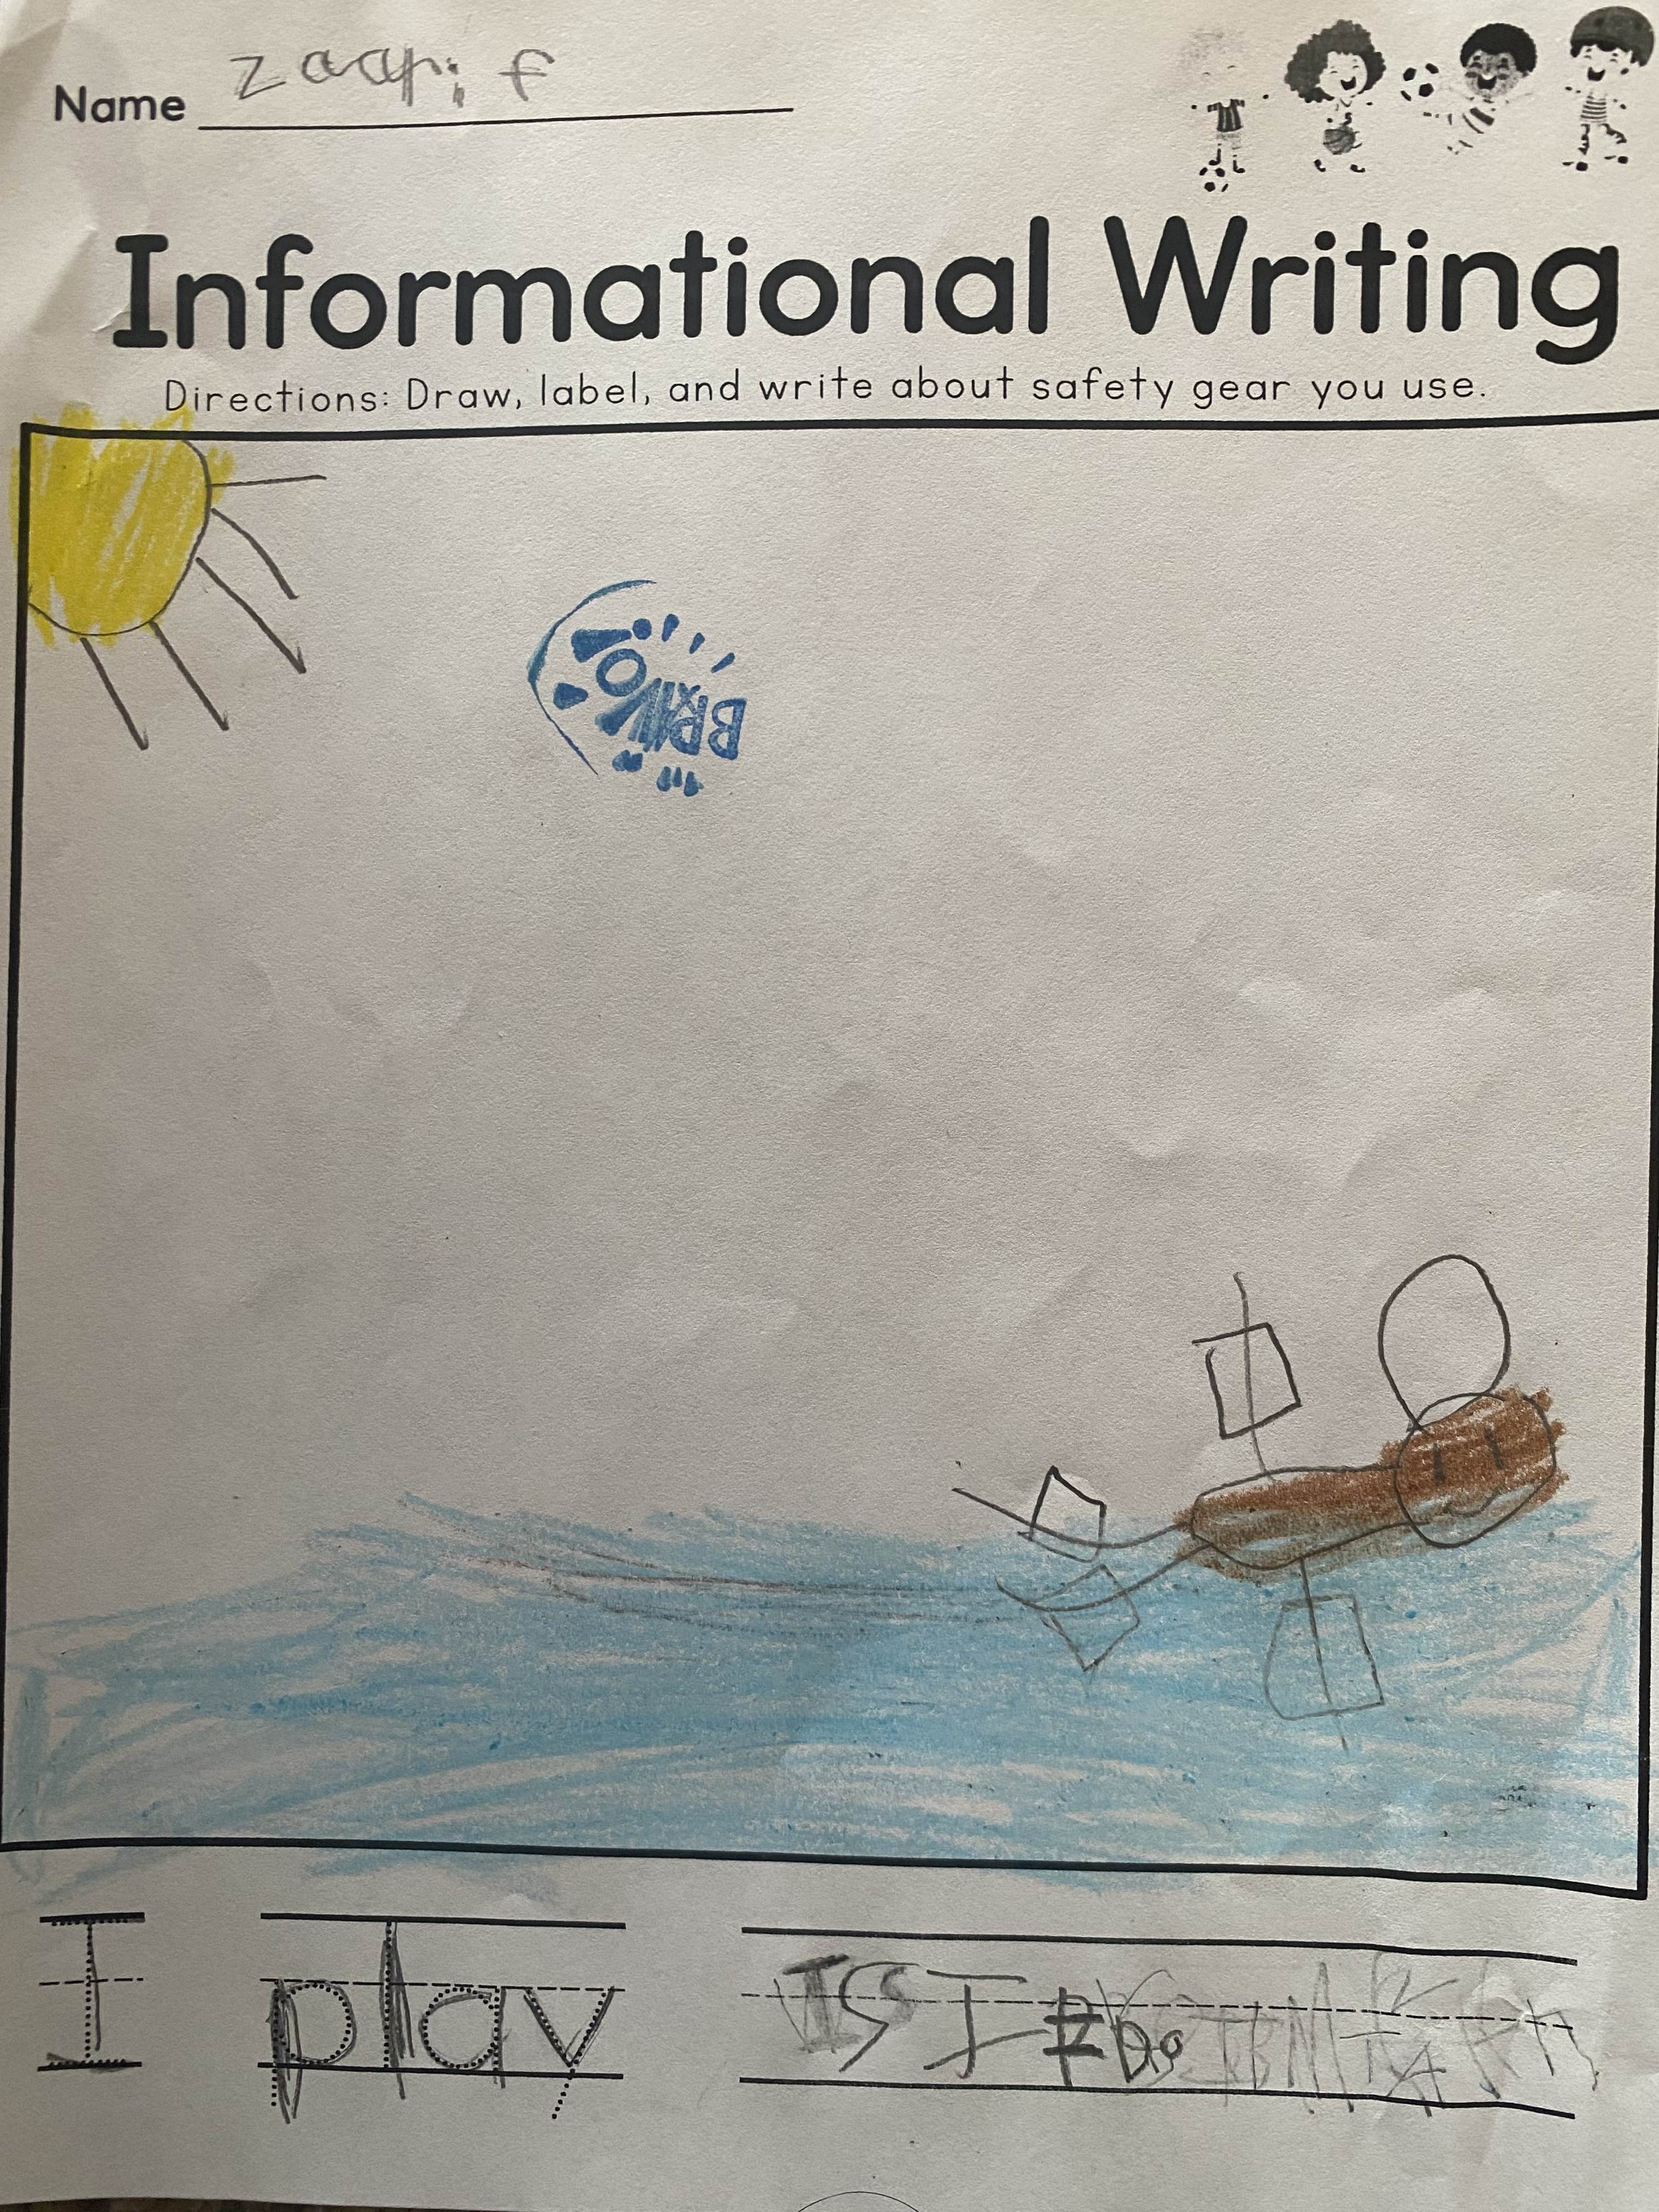 Name zaari f
Informational Writing
Directions: Draw, label, and write about safety gear you use.
BRAVO
I play